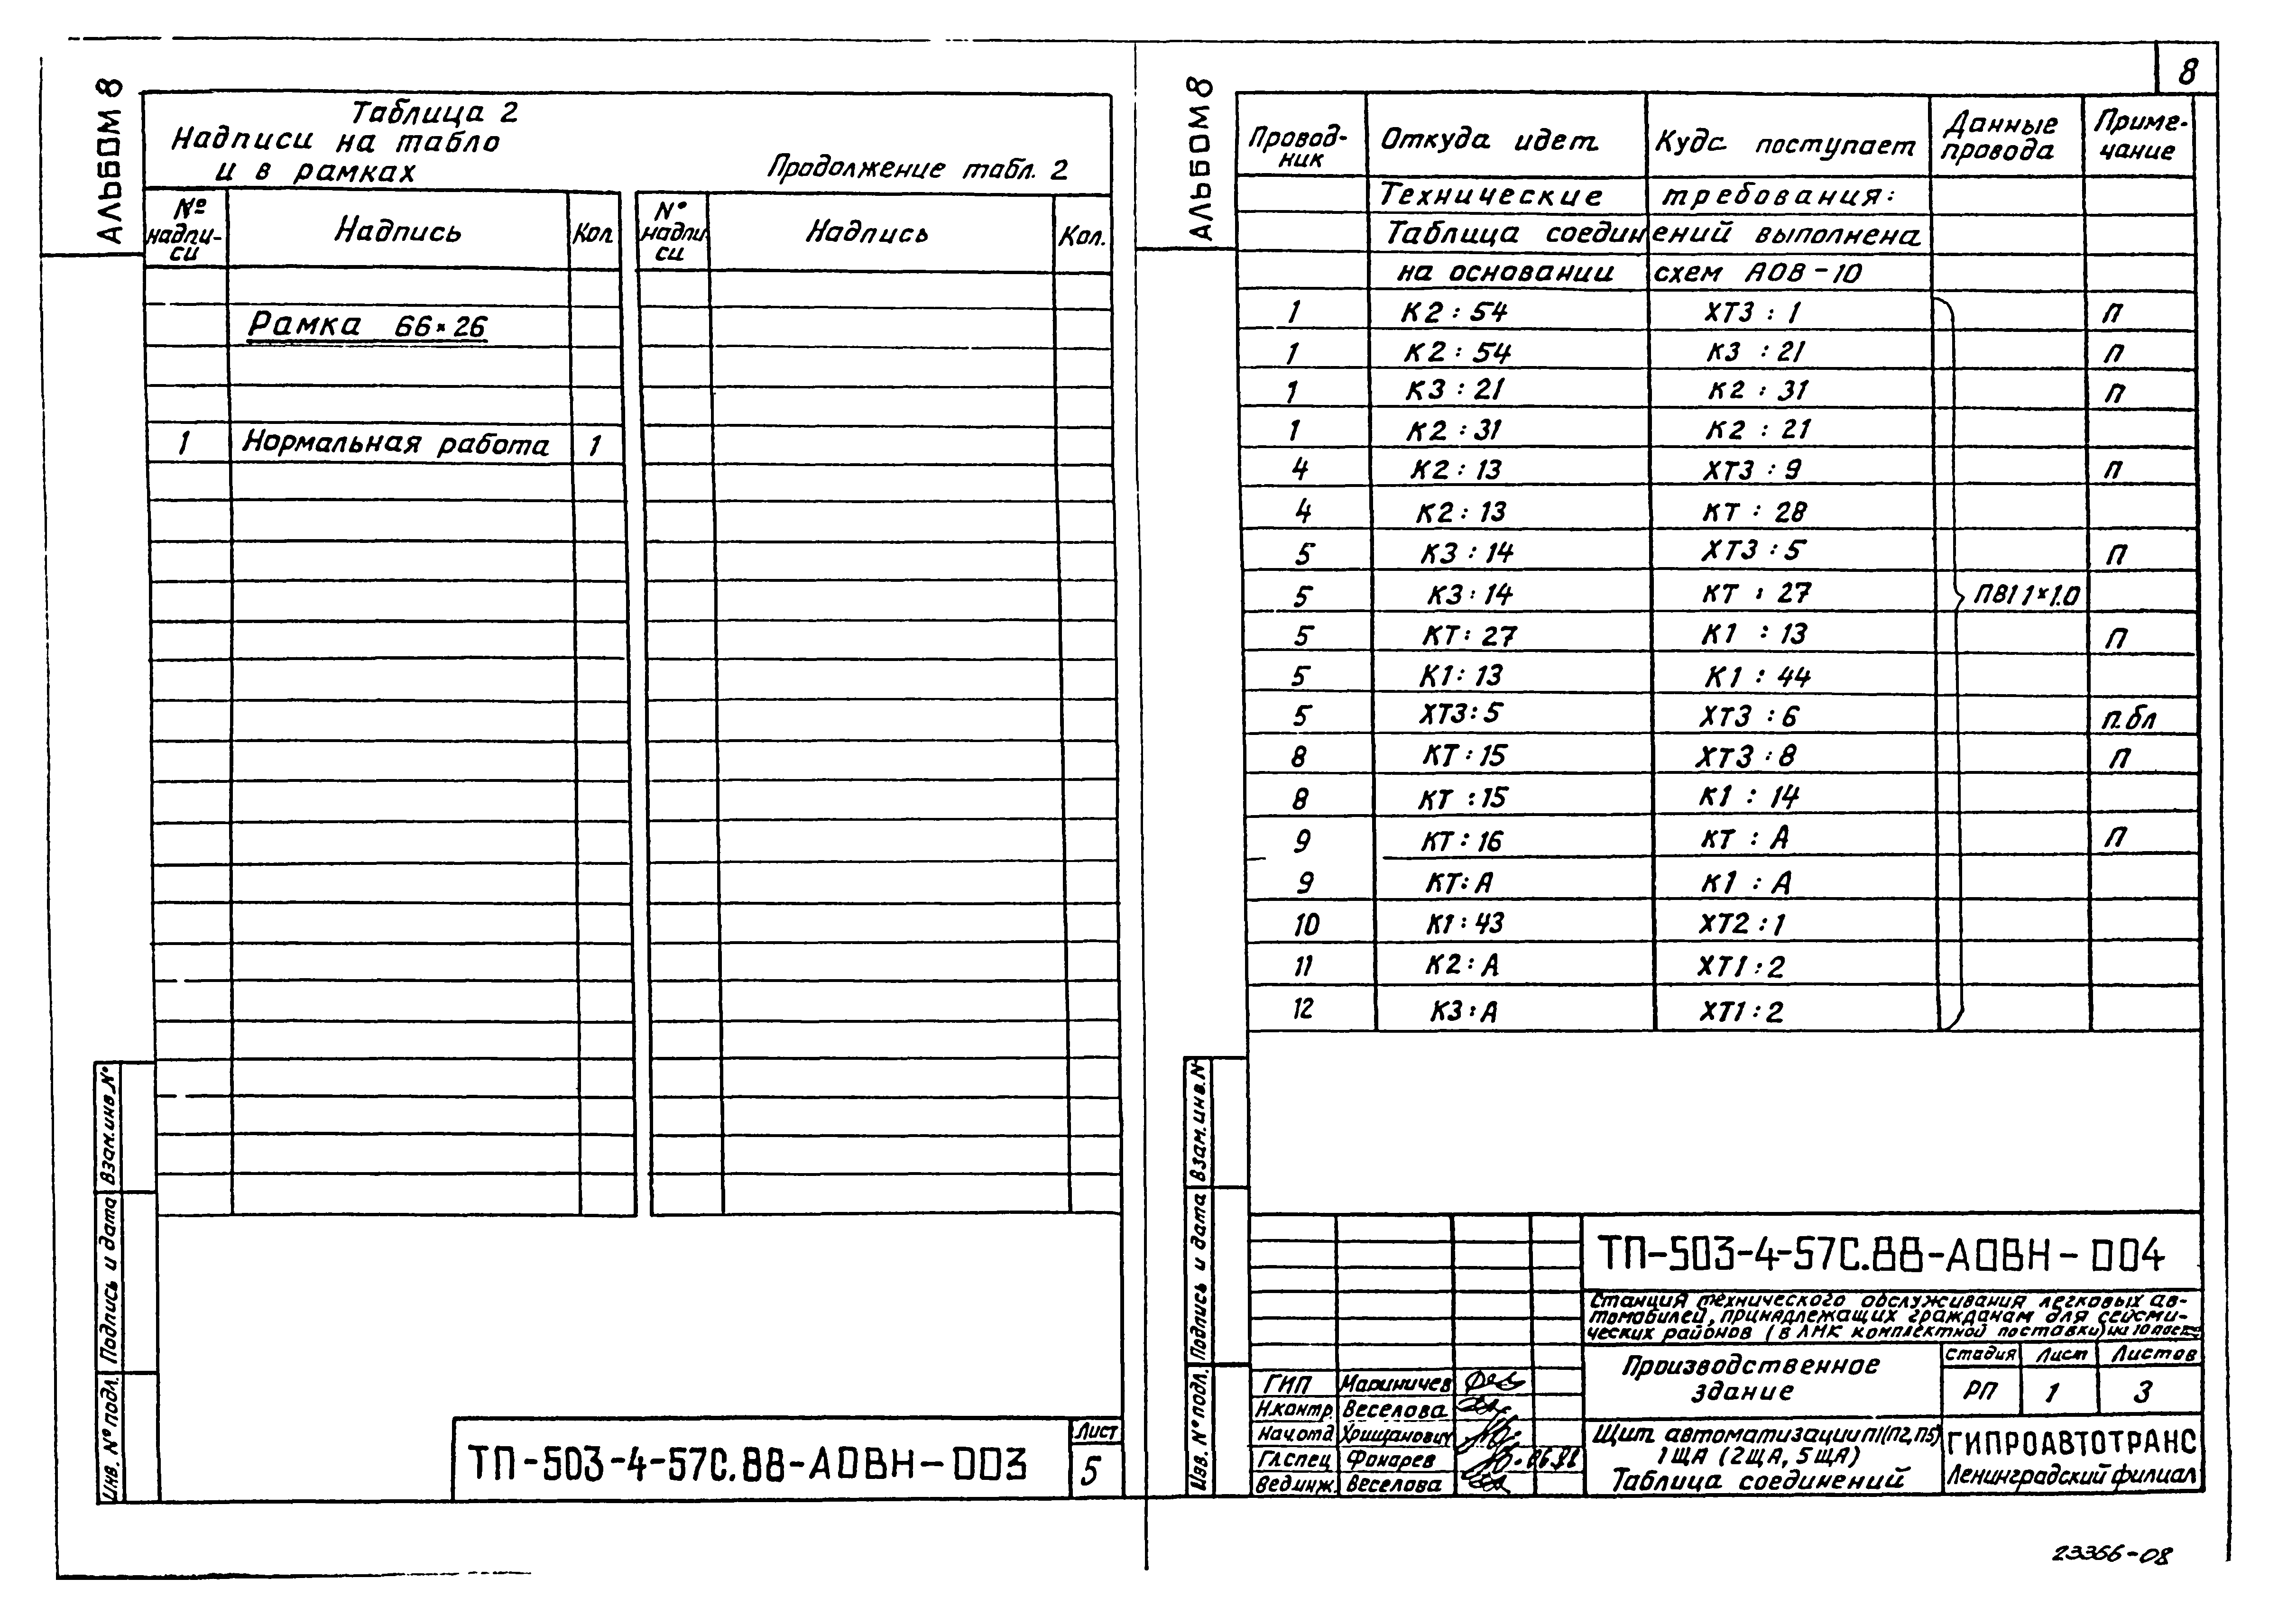 8
Альбом 8
Таблица 2
Надписи на табло
и в рамках
Продолжение табл. 2
№ надпи-си Надпись Кол
N° надпи си Надпись Кол.
Рамка 66×26
1 Нормальная работа 1
Взам.инв.N°
Подпись и дата
Инв. N° подл.
ТП-503-4-57С.88-АОВН-003
Лист
5
Альбом 8
Провод-ник Откуда идет Куда поступает Данные провода Приме-чание
Технические требования:
Таблица соединений выполнена
на основании схем АОВ-10
1 К2:54 ХТ3:1 П
1 К2:54 К3:21 П
1 К3:21 К2:31 П
1 К2:31 К2:21
4 К2:13 ХТ3:9 П
4 К2:13 КТ:28
5 К3:14 ХТ3:5 П
5 К3:14 КТ:27 ПВ1 1×1.0
5 КТ:27 К1:13 П
5 К1:13 К1:44
5 ХТ3:5 ХТ3:6 п.бл
8 КТ:15 ХТ3:8 П
8 КТ:15 К1:14
9 КТ:16 КТ:А П
9 КТ:А К1:А
10 К1:43 ХТ2:1
11 К2:А ХТ1:2
12 К3:А ХТ1:2
Взам.инв.N
Подпись и дата
Инв. N° подл.
ТП-503-4-57С.88-АОВН-004
Станция технического обслуживания легковых ав-
томобилей, принадлежащих гражданам для сейсми-
ческих районов (в ЛМК комплектной поставки) на 10
Производственное
здание
Стадия Лист Листов
РП 1 3
ГИП Мариничев
Н.контр. Веселова
Нач.отд Хрищанович
Гл.спец Фонарев 06.88
Вед.инж. Веселова
Щит автоматизации П1(П2,П5)
1ЩА (2ЩА, 5ЩА)
Таблица соединений
ГИПРОАВТОТРАНС
Ленинградский филиал
23366-08